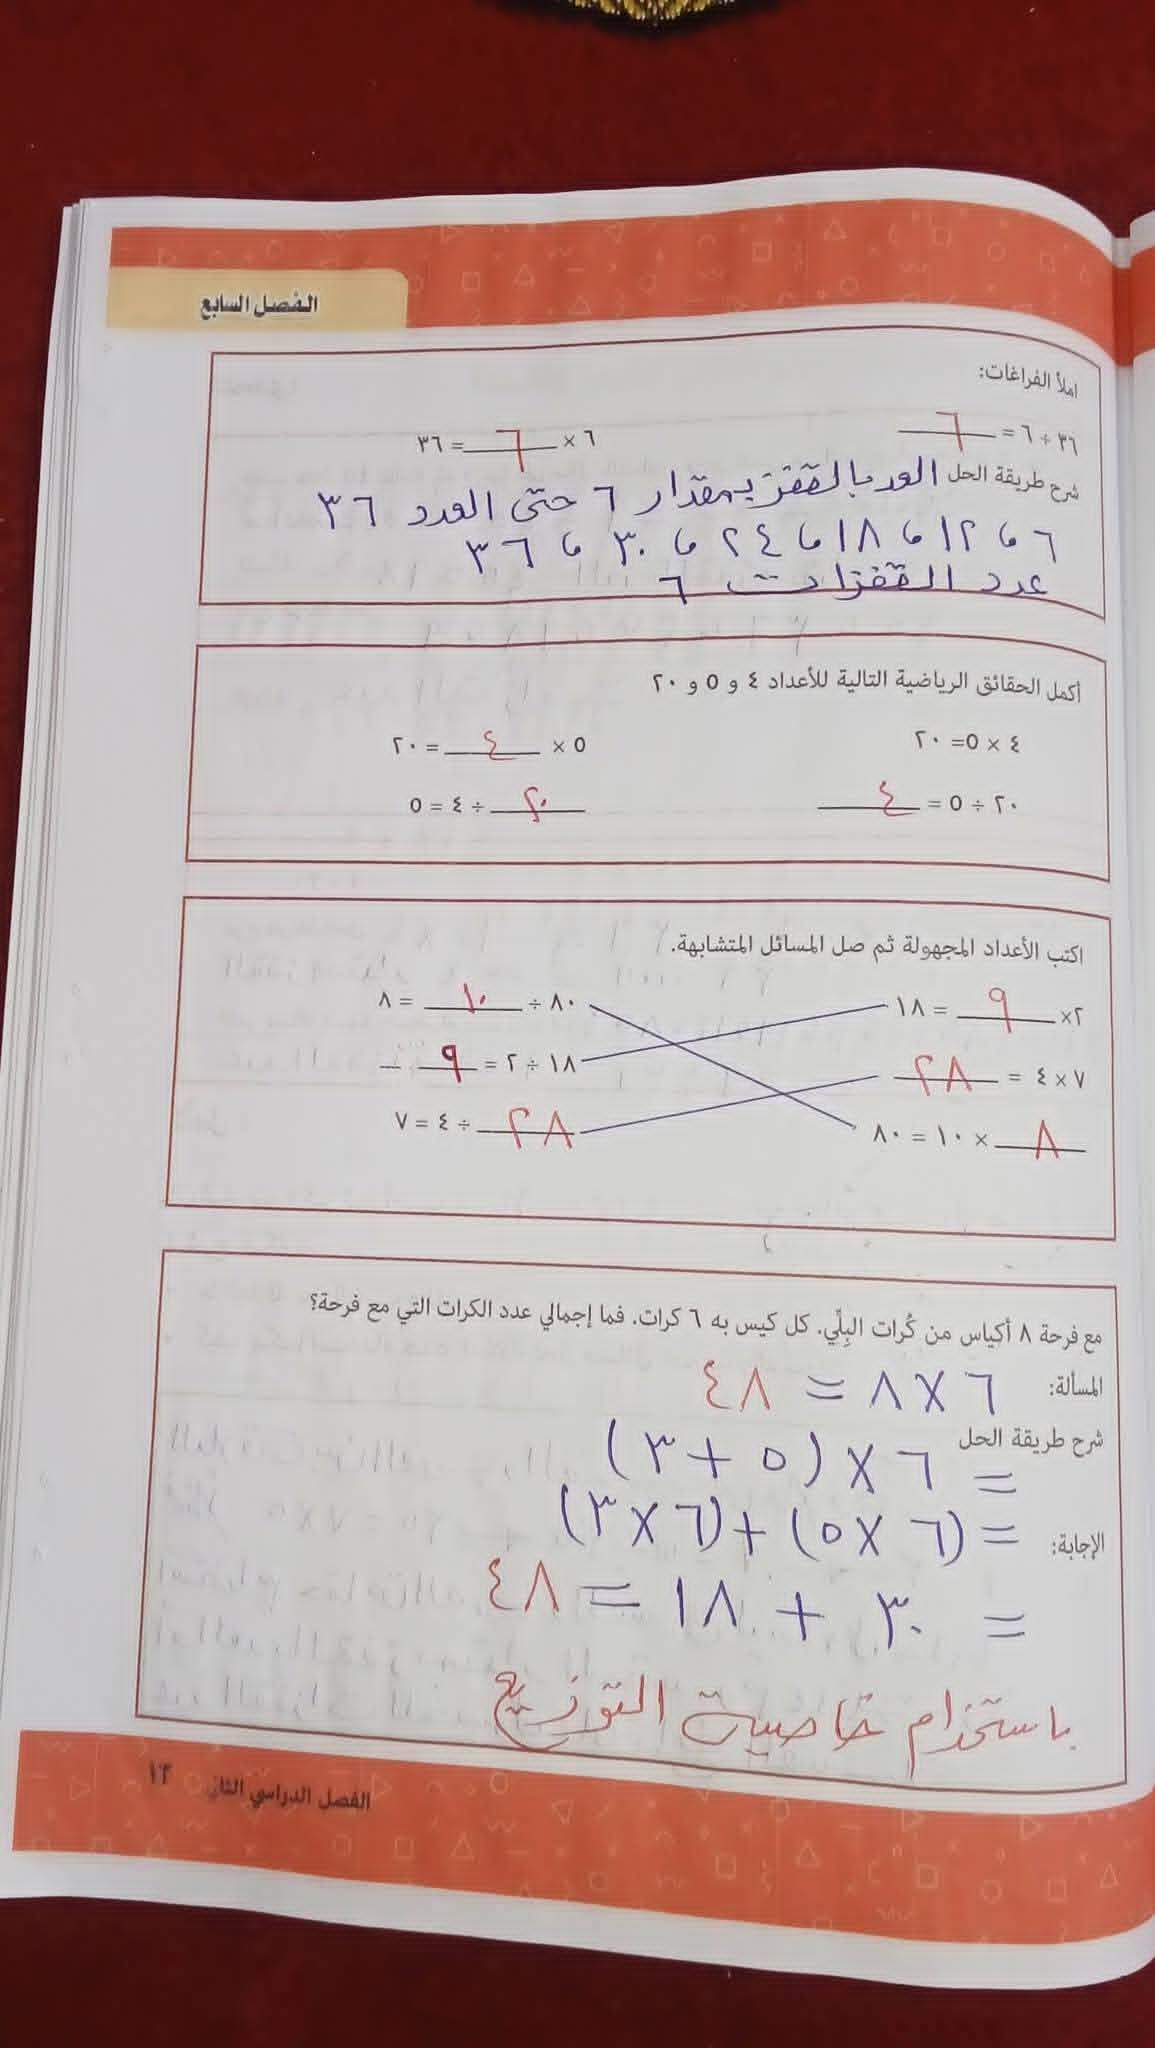 الفصل السابع
املأ الفراغات:
٣٦ ÷ ٦ = ٦
٦ × ٦ = ٣٦
شرح طريقة الحل العد بالقفز بمقدار ٦ حتى العدد ٣٦
٦ ، ١٢ ، ١٨ ، ٢٤ ، ٣٠ ، ٣٦
عدد القفزات ٦
أكمل الحقائق الرياضية التالية للأعداد ٤ و ٥ و ٢٠
٤ × ٥ = ٢٠
٥ × ٤ = ٢٠
٢٠ ÷ ٥ = ٤
٢٠ ÷ ٤ = ٥
اكتب الأعداد المجهولة ثم صل المسائل المتشابهة.
٢× ٩ = ١٨
٨٠ ÷ ١٠ = ٨
٧ × ٤ = ٢٨
١٨ ÷ ٢ = ٩
٨ × ١٠ = ٨٠
٢٨ ÷ ٤ = ٧
مع فرحة ٨ أكياس من كُرات البِلِّي. كل كيس به ٦ كرات. فما إجمالي عدد الكرات التي مع فرحة؟
المسألة: ٦ × ٨ = ٤٨
شرح طريقة الحل
= ٦ × (٥ + ٣)
الإجابة: = (٦ × ٥) + (٦ × ٣)
= ٣٠ + ١٨ = ٤٨
باستخدام خاصية التوزيع
الفصل الدراسي الثاني ١٣